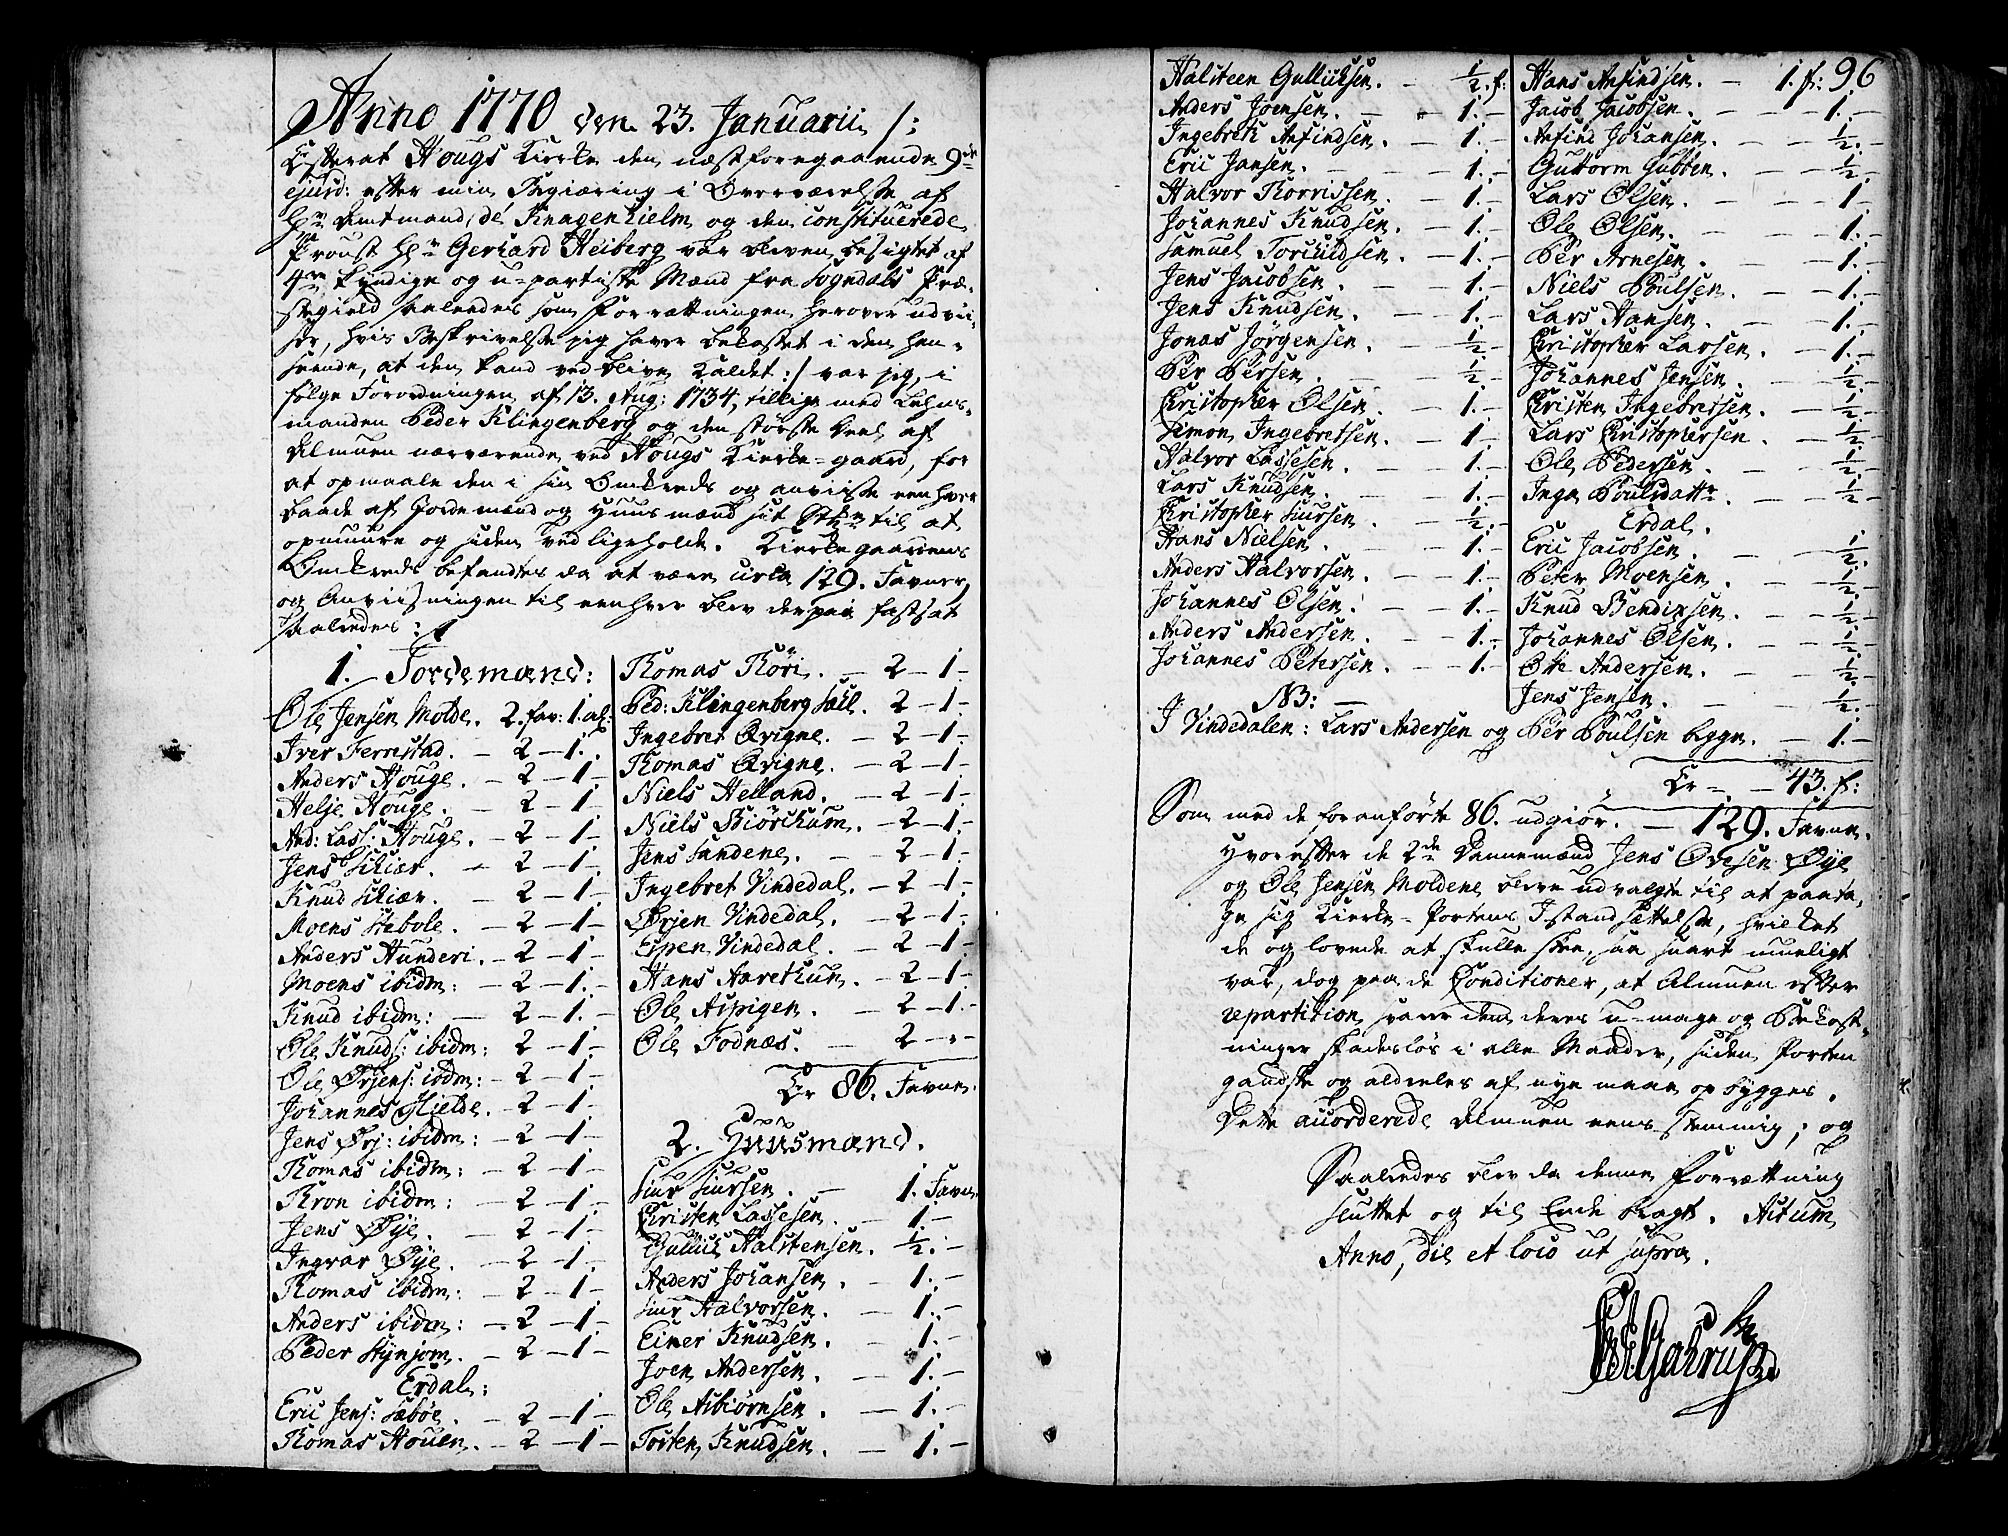 Anno 1770 den 23. Januarii /:
Efterat Hougs Kirke den næstforegaaende 9de
ejusd: efter min Begiæring i Overværelse af
Hr Amtmand de Knagenhielm og den constituerede
Proust Hr Gerhard Heiberg var bleven besigtet af
4re kyndige og u-partiske Mænd fra Sogndals Præ-
stegield saaledes som Forrættningen herover udvii-
ser, hvis Beskrivelse jeg haver bekostet i den hen-
seende, at den kand ved blive Kaldet :/ var jeg, i
følge Forordningen af 13. Aug: 1734, tillige med Lehns-
manden Peder Klingenberg og den største Deel af
Almuen nærværende ved Hougs Kierke-gaard, for
at opmaale den i sin Omkreds og anviise eenhver
baade af Jordemænd og Huusmænd sit til at
opmuure og siden vedligeholde. Kierkegaardens
Omkreds befandtes da at være circa 129. Favner,
og Anviisningen til eenhver blev derpaa fastsat
saaledes:
1. Jordemænd:
Ole Jensen Molde. 2. fav: 1. al:
Iver Ferrestad. - 2 - 1. -
Anders Houge. - 2 - 1 -
Helje Houge. - 2 - 1
And: Lass: Houge. - 2 - 1. -
Jens Skiær. - 2 - 1
Knud Skiær. - 2 - 1. -
Moens Stebole. - 2 - 1. -
Anders Hunderi. - 2 - 1. -
Moens ibidm: - 2 - 1. -
Knud ibidm: - 2 - 1. -
Ole Knuds: ibidm: 2 - 1. -
Ole Ørjens: ibdm: - 2 - 1. -
Johannes Hielde. - 2 - 1. -
Jens Ørj: ibidm: - 2 - 1 -
Thomas ibidm: - 2 - 1 -
Thron ibidm: - 2 - 1 -
Jens Øÿe. - 2 - 1 -
Ingvar Øÿe. - 2 - 1. -
Thomas ibidm: - 2 - 1 -
Anders ibidm: - 2 - 1. -
Peder Stÿnjom. - 2 - 1. -
Erdal:
Eric Jens: Sæbøe. - 2 - 1. -
Thomas Houen. - 2 - 1 -
Thomas Thöri. - 2 - 1. -
Ped: Klingenberg 2 - 1 -
Ingebret Qvigne. - 2 - 1 -
Thomas Qvigne. - 2 - 1 -
Niels Helland. - 2 - 1
Niels Biörchum. - 2 - 1. -
Jens Sandene. - 2 - 1. -
Ingebret Vindedal. - 2 - 1. -
Ørjen Vindedal. - 2 - 1. -
Espen Vindedal. - 2 - 1. -
Hans Aarethun. - 2 - 1. -
Ole Aspigen. - 2 - 1. -
Ole Fodnæs. - 2 - " -
Er 86. Favne.
2. Huusmænd.
Siur Siursen. - 1. Favn
Christen Lassesen. - 1. -
Gullich Halstensen. - ½. -
Anders Johansen. - 1. -
Siur Halvorsen. - 1. -
Einer Knudsen. - 1. -
Joen Andersen. - 1. -
Ole Asbiörnsen. - 1. -
Torsten Knudsen. - 1. -
96
Halsteen Gullichsen. - ½. f:
Anders Joensen. - 1. -
Ingebreth Anfindsen. - 1. -
Eric Jansen. - 1. -
Halvor - 1. -
Johannes Knudsen. - 1. -
Samuel Torchildsen. - 1. -
Jens Jacobsen. - 1. -
Jens Knudsen. - 1. -
Jonas Jörgensen. - ½ -
Per Persen. - ½ -
Christopher Olsen. - 1. -
Simon Ingebretsen. - 1 -
Halvor Lassesen. - 1. -
Lars Knudsen. - 1. -
Christopher Siursen. - ½. -
Hans Nielsen. - 1. -
Anders Halvorsen. - 1. -
Johannes Olsen. - 1. -
Anders Andersen. - 1. -
Johannes Petersen. - 1. -
NB:
Hans Anfindsen. - 1. f:
Jacob Jacobsen. - 1. -
Anfind Johansen. - ½. -
Guttorm Gubben. - ½. -
Lars Olsen. - 1. -
Ole Olsen. - 1. -
Per Arnesen. - 1. -
Niels Poulsen. - 1. -
Lars Hansen. - 1. -
Christopher Larsen. - 1. -
Johannes Jensen. - ½.
Christen Ingebretsen. - ½.
Lars Christophersen. - ½.
Ole Pedersen. - ½.
Inga Poulsdattr. - ½ -
Erdal.
Eric Jacobsen. - ½.
Peter Moensen. - ½.
Knud Bendixsen. - ½.
Johannes Olsen. - ½.
Ole Andersen. - ½.
Jens Jensen. - ½. -
I Vindedalen: Lars Andersen og Per Poulsen begge. - 1. -
Er - 43. f:
Som med de foranförte 86. udgiör. - 129. Favne.
Hvorefter de 2de Dannemænd Jens Ovesen Øÿe
og Ole Jensen Moldene bleve udvalgte til at paata-
ge sig Kierke-Portens Istandsættelse, hvilket
de og lovede at skulle skee, saa snart mueligt
var, dog paa de Conditioner, at Almuen efter
repartition svare dem deres u-mage og Bekost-
ninger skadeslös i alle Maader, siden Porten
gandske og aldeles af nye maae opbygges.
Dette accorderede Almuen eenstemmig; og
Saaledes blev da denne Forrættning
sluttet og til Ende bragt. Actum
Anno, die et loco ut supra.